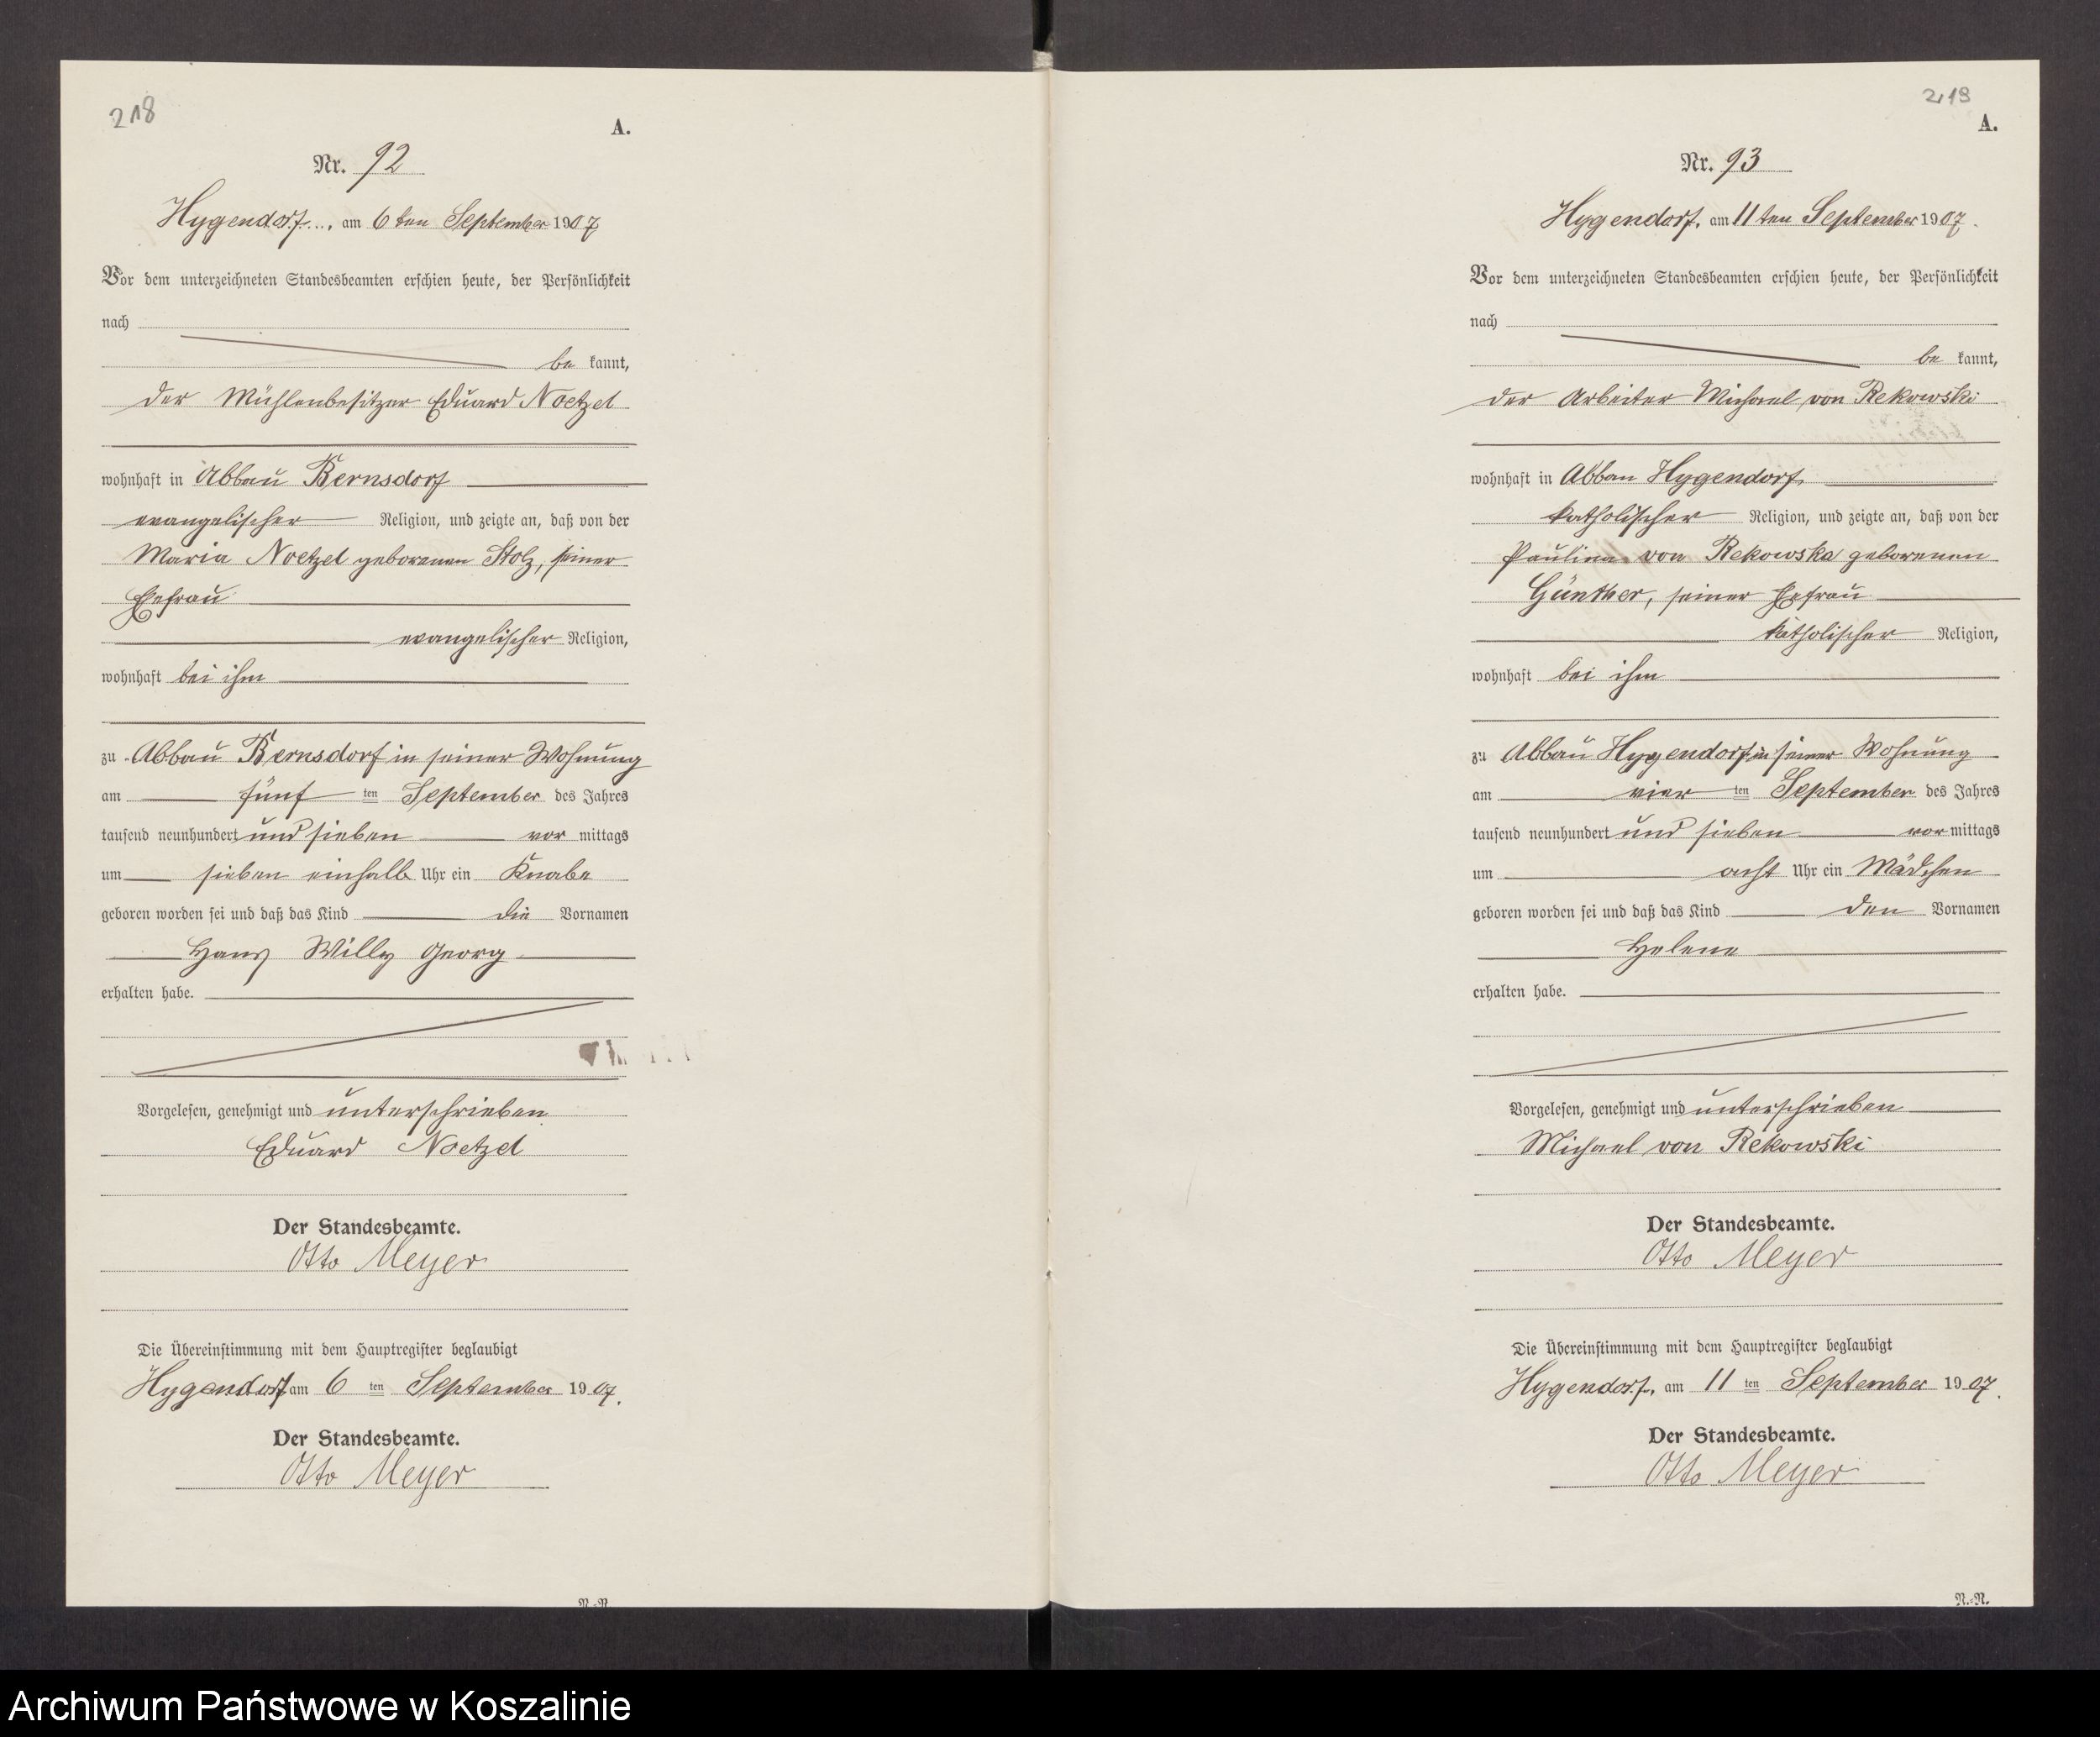 218
A.
Nr. 92
Hygendorf, am 6ten September 1907
Vor dem unterzeichneten Standesbeamten erschien heute, der Persönlichkeit
nach
be kannt,
der Mühlenbesitzer Eduard Noetzel
wohnhaft in Abbau Bernsdorf
evangelischer Religion, und zeigte an, daß von der
Maria Noetzel geborenen Stolz, seiner
Ehefrau
evangelischer Religion,
wohnhaft bei ihm
zu Abbau Bernsdorf in seiner Wohnung
am fünf ten September des Jahres
tausend neunhundert und sieben vor mittags
um sieben einhalb Uhr ein Knabe
geboren worden sei und daß das Kind die Vornamen
Hans Willy Georg
erhalten habe.
Vorgelesen, genehmigt und unterschrieben
Eduard Noetzel
Der Standesbeamte.
Otto Meyer
Die Übereinstimmung mit dem Hauptregister beglaubigt
Hygendorf am 6 ten September 1907.
Der Standesbeamte.
Otto Meyer
N.-N.
219
A.
Nr. 93
Hygendorf, am 11ten September 1907.
Vor dem unterzeichneten Standesbeamten erschien heute, der Persönlichkeit
nach
be kannt,
der Arbeiter Michael von Rekowski
wohnhaft in Abbau Hygendorf,
katholischer Religion, und zeigte an, daß von der
Paulina von Rekowska geborenen
Günther, seiner Ehefrau
katholischer Religion,
wohnhaft bei ihm
zu Abbau Hygendorf in seiner Wohnung
am vier ten September des Jahres
tausend neunhundert und sieben vor mittags
um acht Uhr ein Mädchen
geboren worden sei und daß das Kind den Vornamen
Helene
erhalten habe.
Vorgelesen, genehmigt und unterschrieben
Michael von Rekowski
Der Standesbeamte.
Otto Meyer
Die Übereinstimmung mit dem Hauptregister beglaubigt
Hygendorf, am 11 ten September 1907.
Der Standesbeamte.
Otto Meyer
N.-N.
Archiwum Państwowe w Koszalinie